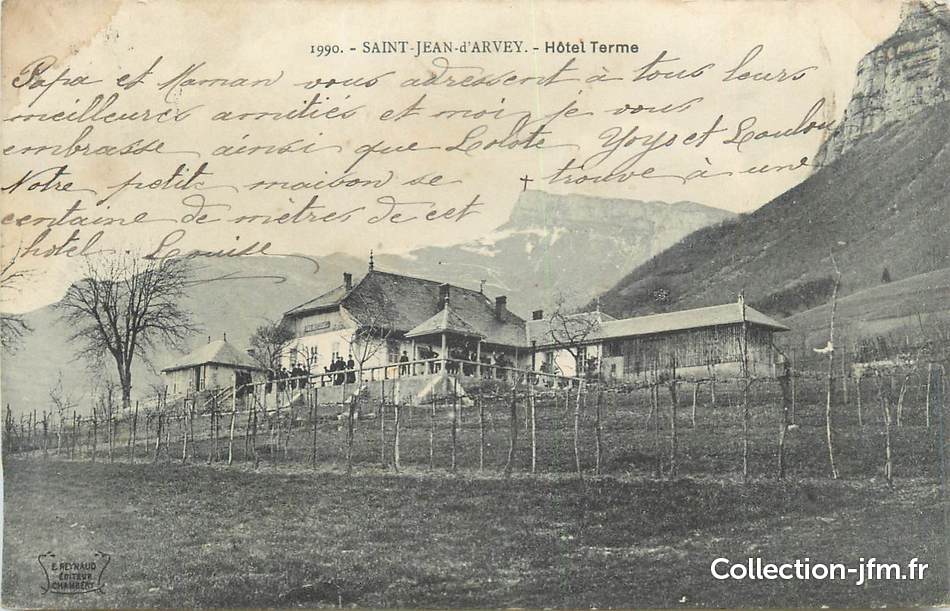 1990. - SAINT-JEAN-d'ARVEY. - Hôtel Terme
Papa et Maman vous adressent à tous leurs
meilleures amitiés et moi je vous
embrasse ainsi que Lolote Yoyo et Loulou
Notre petit maison se trouve à une
centaine de mètres de cet
hotel Louise
E. REYNAUD
ÉDITEUR
CHAMBÉRY
Collection-jfm.fr